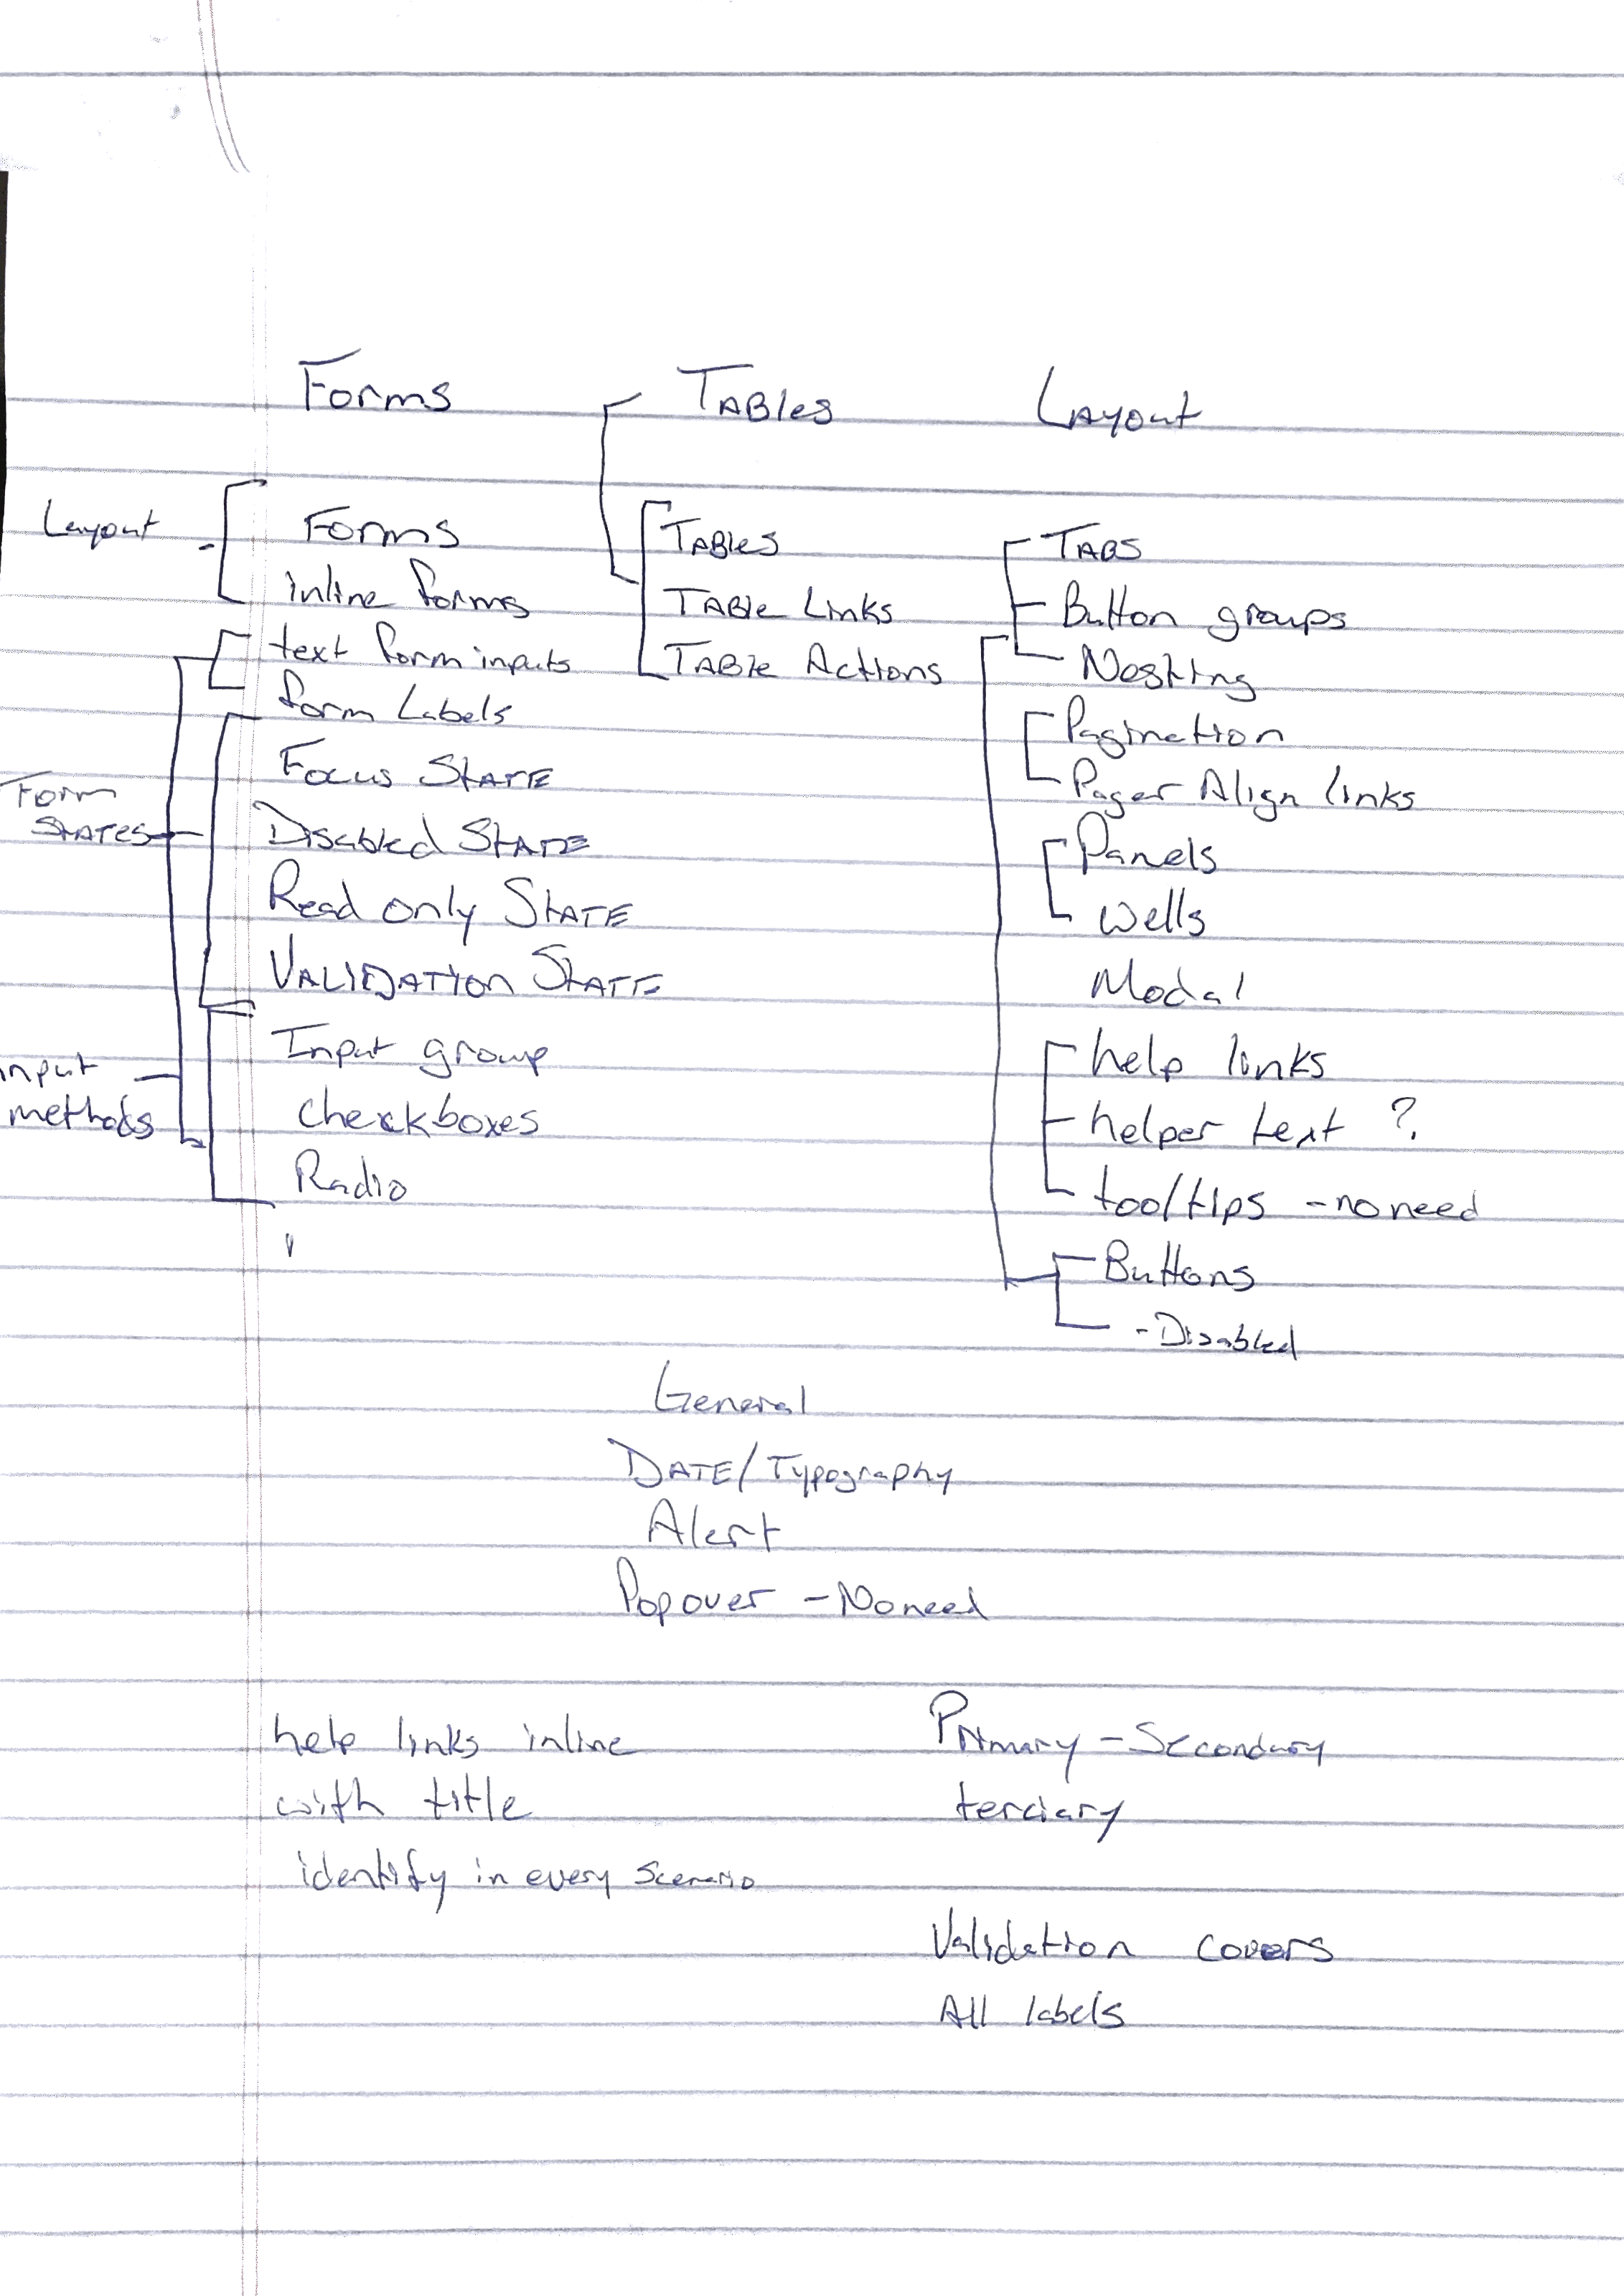 Forms
TABles
Layout
Layout
Forms
inline forms
text form inputs
form Labels
Form
STATES
Focus STATE
Disabled STATE
Read only STATE
VALIDATION STATE
input
methods
Input group
checkboxes
Radio
TABles
TABle Links
TABle Actions
TABS
Button groups
Nesting
Pagination
Pager Align links
Panels
Wells
Modal
help links
helper text ?
tooltips - no need
Buttons
- Disabled
General
DATE/Typography
Alert
Popover - No need
help links inline
with title
identify in every scenario
Primary - Secondary
terciary
Validation covers
All labels